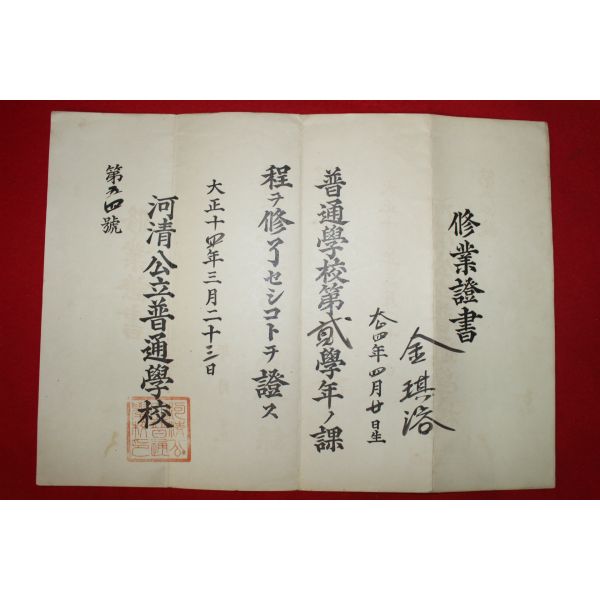 修業證書
金琪
大四年四月廿日生
普通學校第貳學年ノ課
程ヲ修了セシコトヲ證ス
大正十四年三月二十三日
河清公立普通學校
第五四號